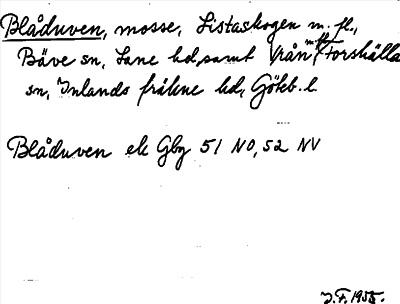 Blåduven, mosse, Listaskogen m. fl.,
Bäve sn, Lane hd, samt Vrån m fl, Forshälla
sn, Inlands fräkne hd, Göteb. l.
Blåduven ek Gbg 51 NO, 52 NV
J.F. 1955.